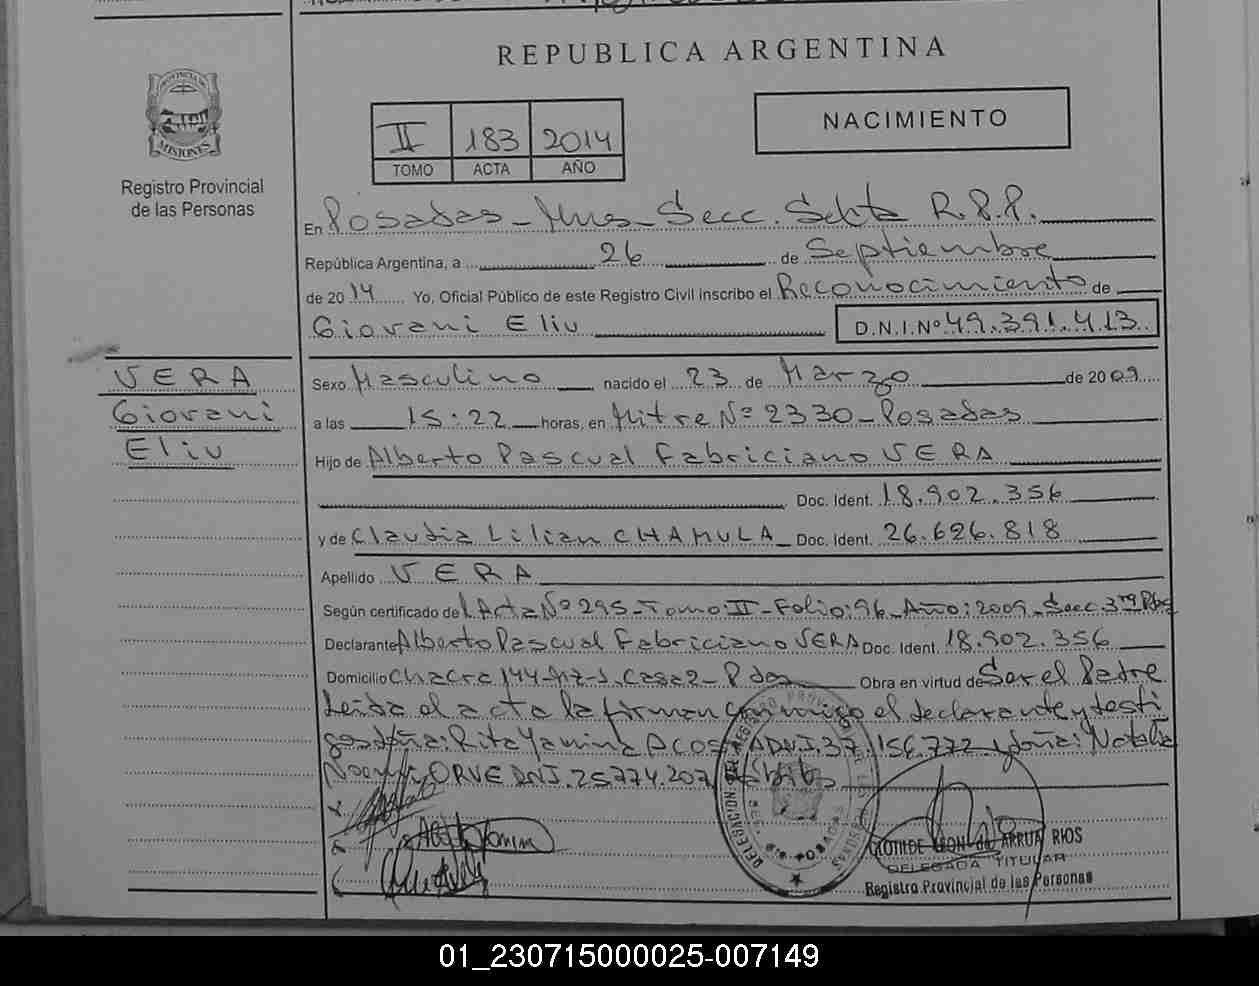 REPUBLICA ARGENTINA
PROVINCIA DE
MISIONES
Registro Provincial
de las Personas
II 183 2014
TOMO ACTA AÑO
NACIMIENTO
En Posadas - Mnes - Secc. Sexta R.P.P.
República Argentina, a 26 de Septiembre
de 2014 Yo, Oficial Público de este Registro Civil inscribo el Reconocimiento de
Giovani Eliu D.N.I.Nº 49.391.413
VERA
Giovani
Eliu
Sexo Masculino nacido el 23 de Marzo de 2009
a las 15:22 horas, en Mitre Nº 2330 - Posadas
Hijo de Alberto Pascual Fabriciano VERA
Doc. Ident. 18.902.356
y de Claudia Lilian CHAMULA Doc. Ident. 26.626.818
Apellido VERA
Según certificado del Acta Nº 295 - Tomo: II - Folio: 96 - Año: 2009 - Secc. 3ra
Declarante Alberto Pascual Fabriciano VERA Doc. Ident. 18.902.356
Domicilio Chacra 144 - Mz-J, Casa 2 - Pdas Obra en virtud de Ser el Padre
Leída el acta la firman conmigo el declarante y testi
gos doña: Rita Yanina ACOSTA DNI. 37.156.772 y doña: Natalia
Noemi ORUE DNI. 25.774.207
DELEGACION DEL REGISTRO PROVINCIAL DE LAS PERSONAS
SEC. 6ta POSADAS
CLOTILDE de ARRUA RIOS
DELEGADA TITULAR
Registro Provincial de las Personas
01_230715000025-007149